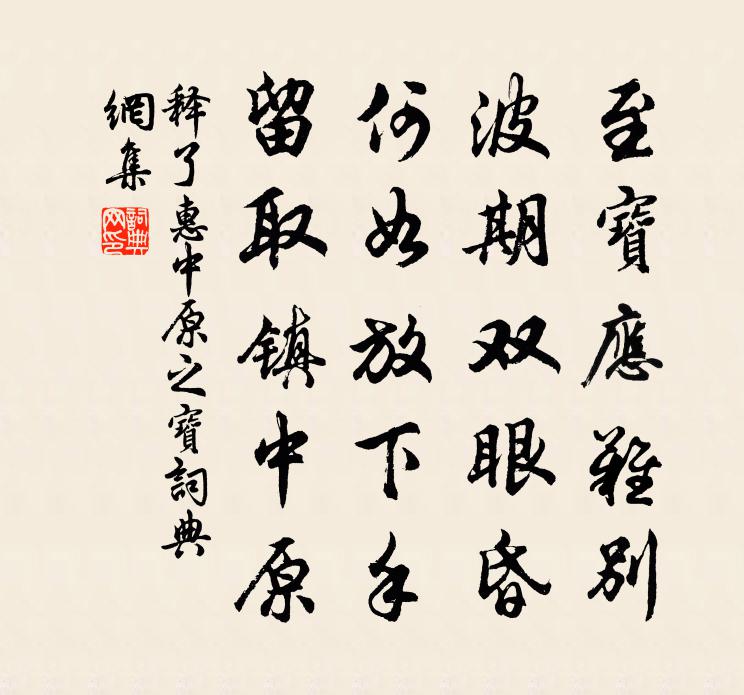 至寶應難別
波期双眼昏
何如放下手
留取鎮中原
釋了惠中原之寶詞典
網集
詞典
网印